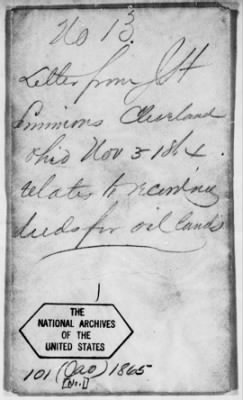 No 13
Letter from J H
Simmons Cleveland
Ohio Nov 3 1864.
relates to recording
deeds for oil lands
1
THE
NATIONAL ARCHIVES
OF THE
UNITED STATES
101 (Jao) 1865
[No. 1]